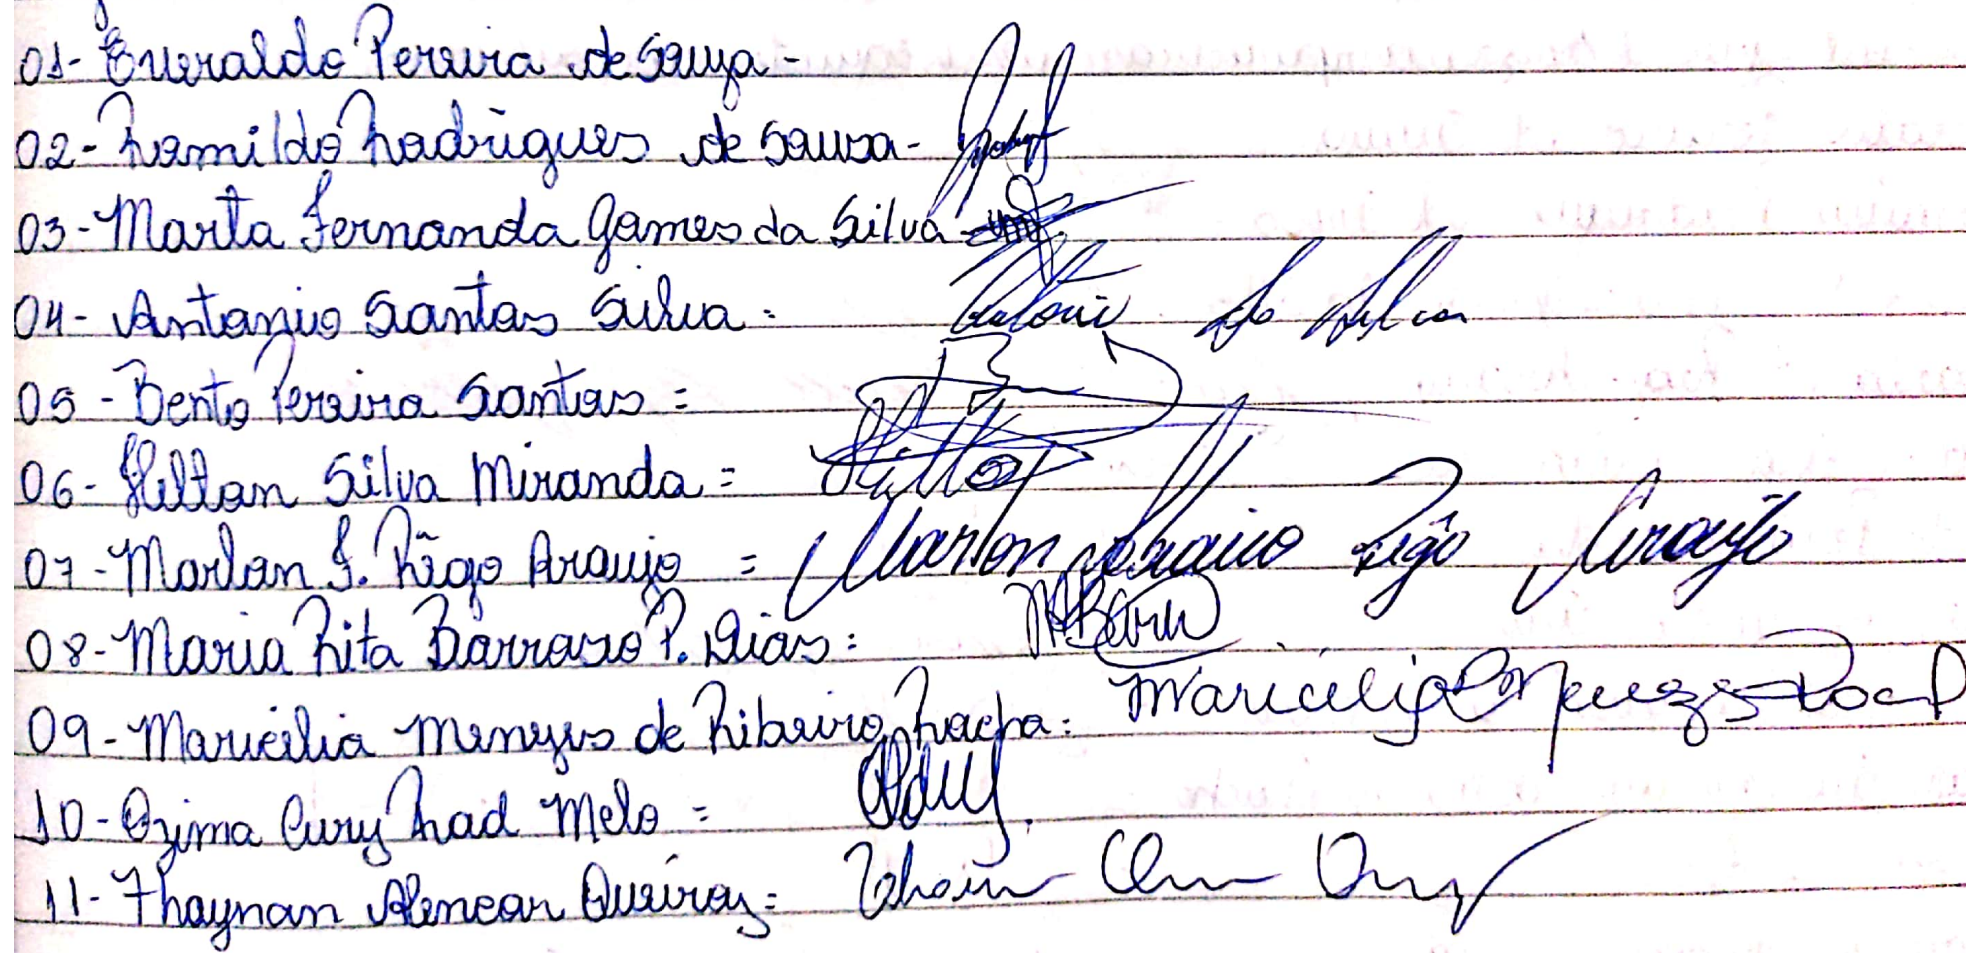 01- Everaldo Pereira de Souza -
02- Romildo Rodrigues de Sousa -
03- Marta Fernanda Gomes da Silva -
04- Antonio Santos Silva - Antônio do Silva
05 - Bento Pereira Santos =
06- Hilton Silva Miranda = Hilton
07- Marlon S. Rêgo Araujo = Marlon Rêgo Araújo
08- Maria Rita Barroso P. Dias:
09- Maricélia Menezes de Ribeiro Rocha: Maricélia Menezes Rocha
10- Ozima Cury Rad Melo =
11- Thaynan Alencar Queiroz =